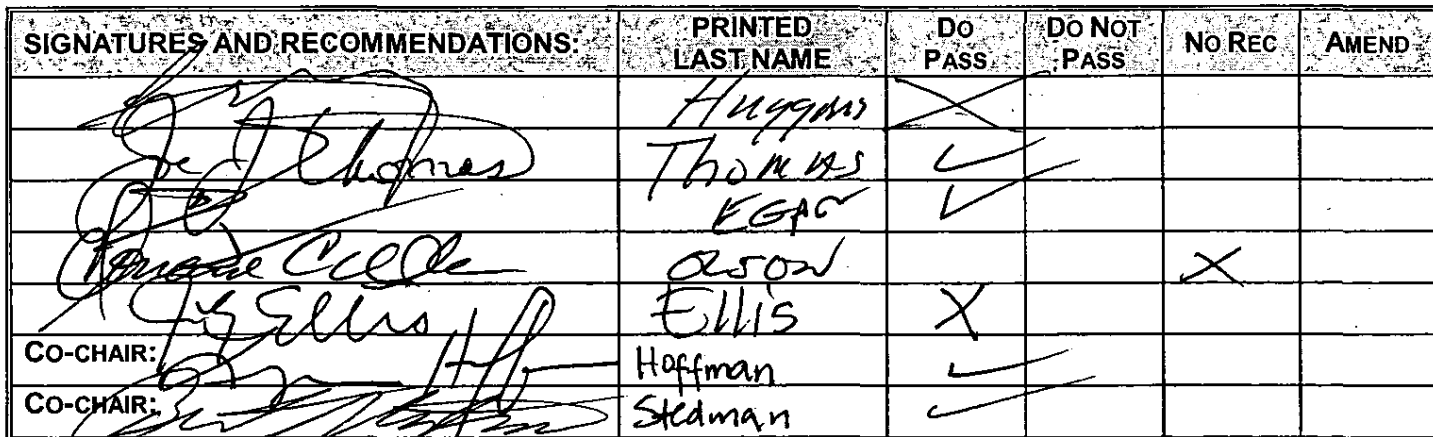 SIGNATURES AND RECOMMENDATIONS: PRINTED LAST NAME DO PASS DO NOT PASS NO REC AMEND
Huggins X
Thomas Thomas ✓
EGAN ✓
Olson X
Ellis Ellis X
CO-CHAIR: Hoffman ✓
CO-CHAIR: Stedman ✓